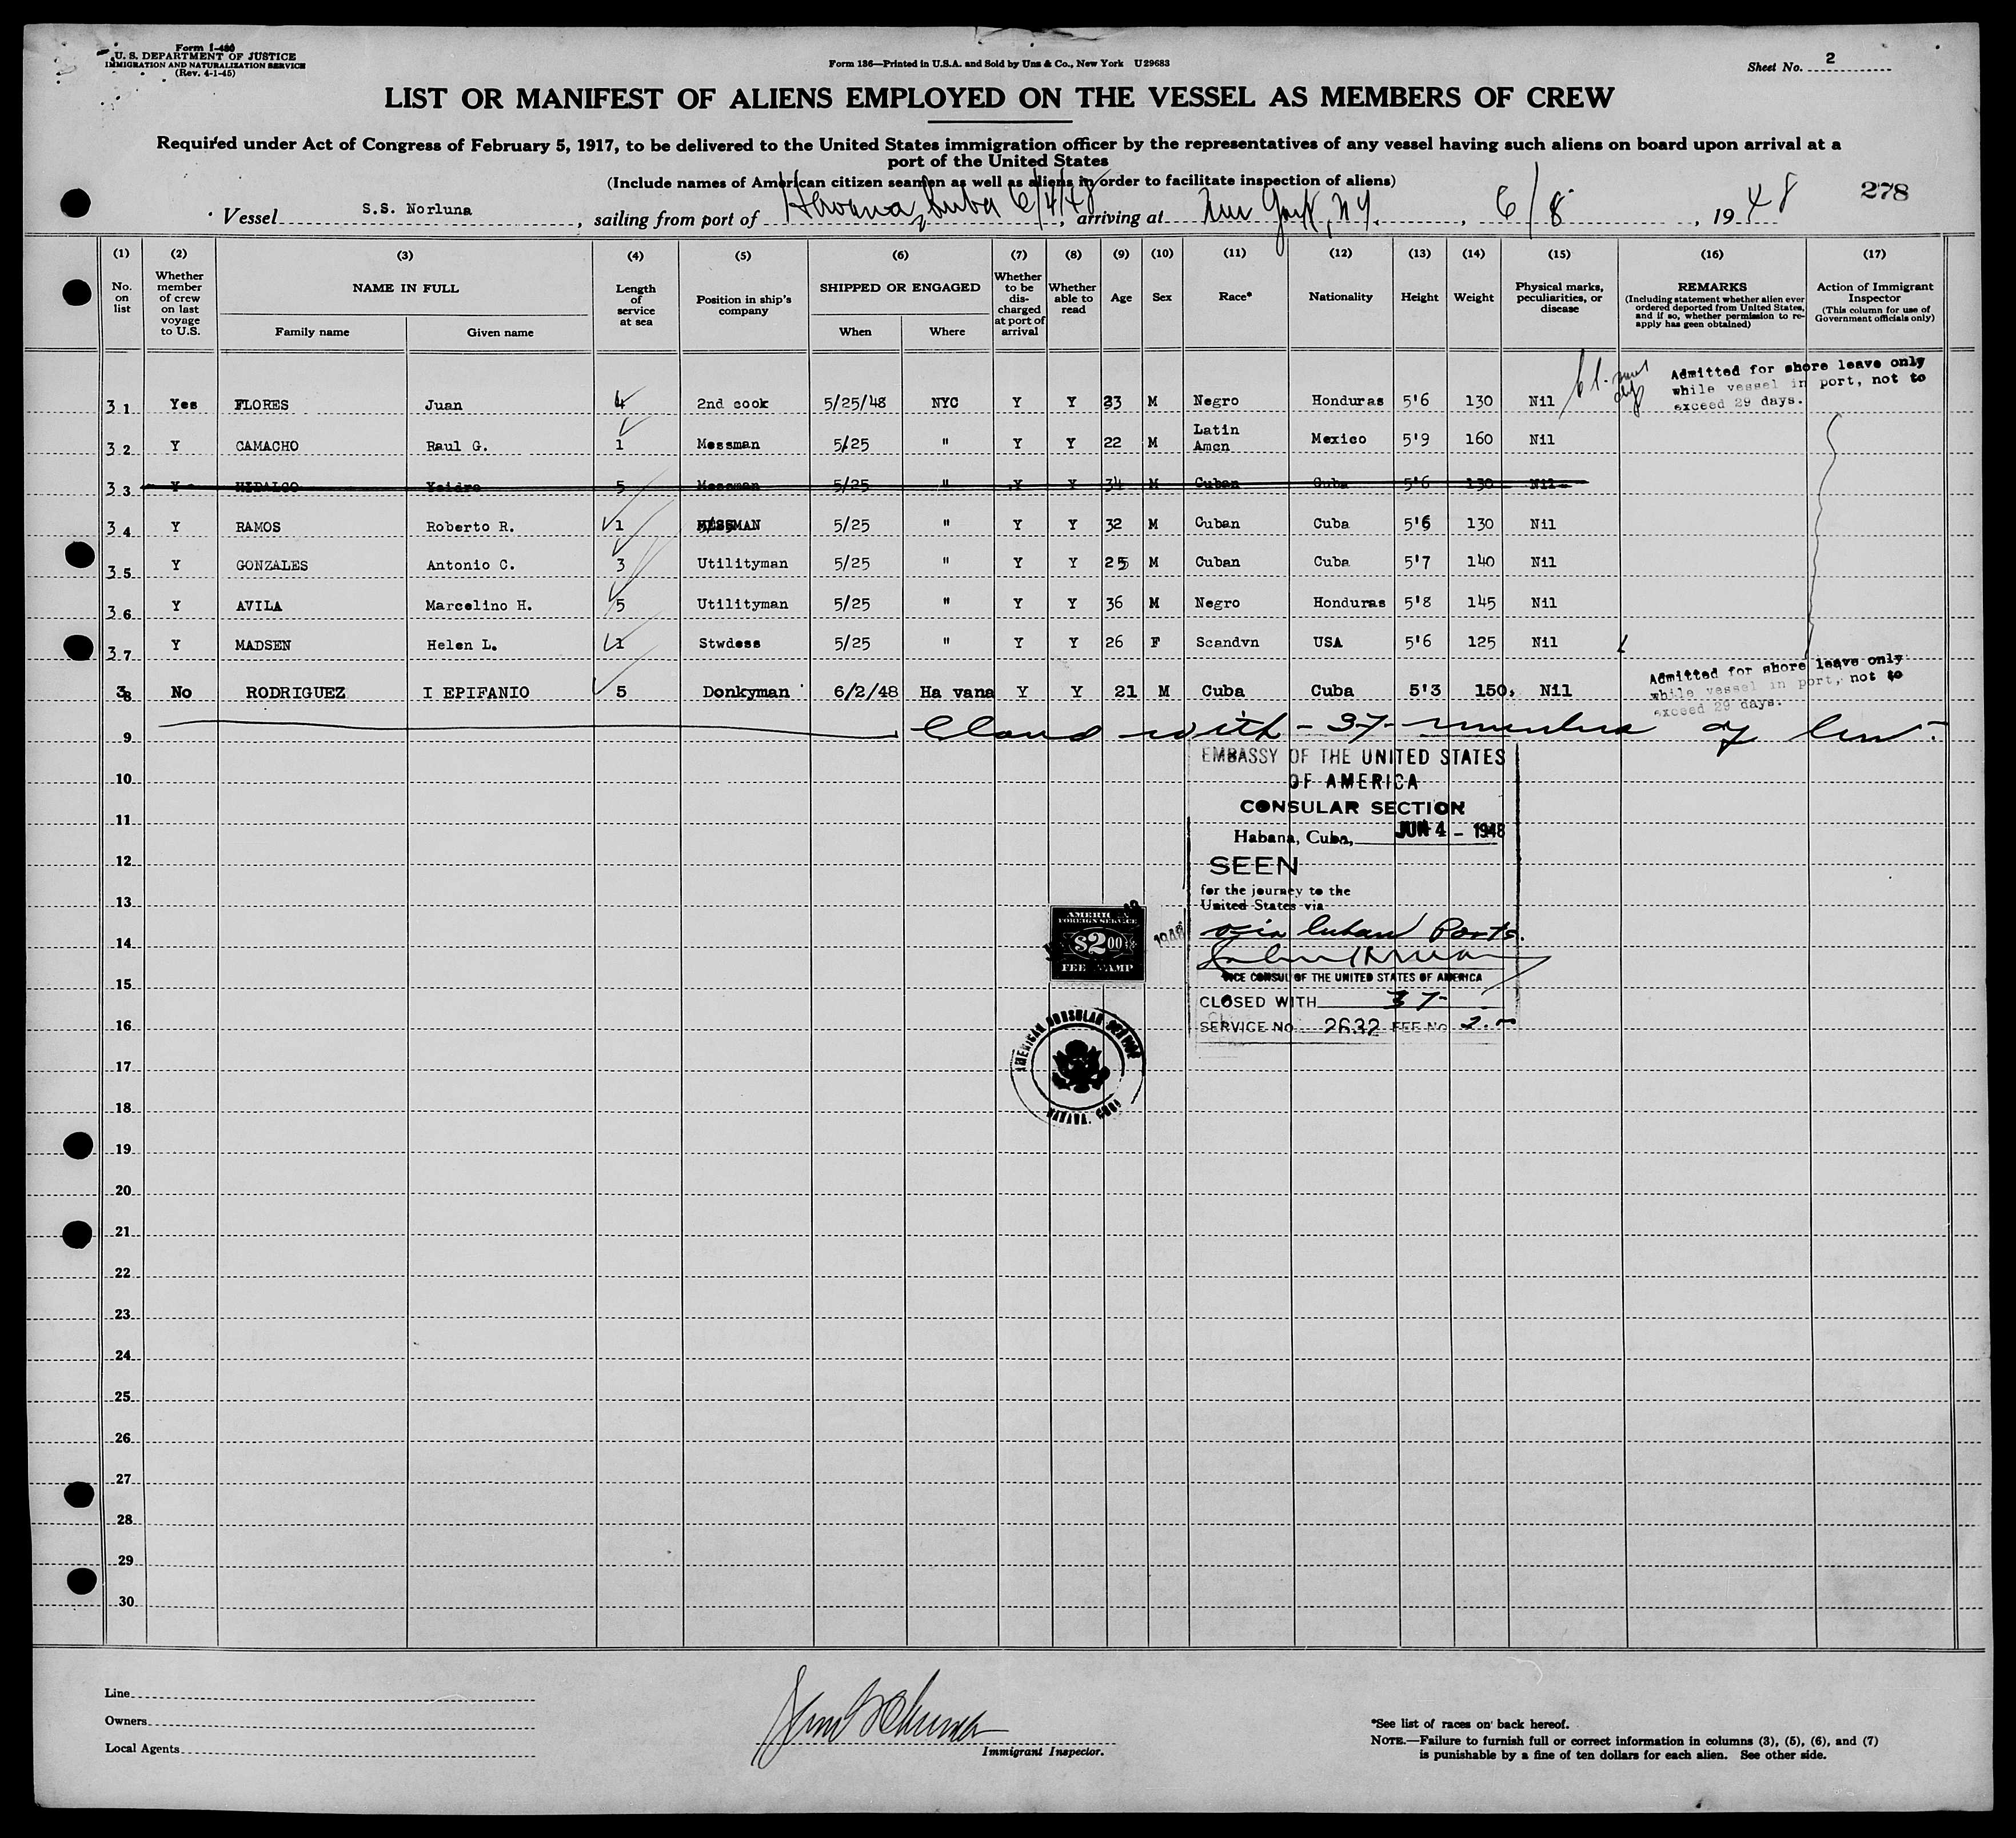 Form I-480
U. S. DEPARTMENT OF JUSTICE
IMMIGRATION AND NATURALIZATION SERVICE
(Rev. 4-1-45)
Form 186—Printed in U.S.A. and Sold by Unz & Co., New York U29683
Sheet No. 2
LIST OR MANIFEST OF ALIENS EMPLOYED ON THE VESSEL AS MEMBERS OF CREW
Required under Act of Congress of February 5, 1917, to be delivered to the United States immigration officer by the representatives of any vessel having such aliens on board upon arrival at a
port of the United States
(Include names of American citizen seamen as well as aliens in order to facilitate inspection of aliens)
278
Vessel S.S. Norluna, sailing from port of Havana, Cuba 6/4/48, arriving at New York, N.Y., 6/8, 1948
(1) (2) (3) (4) (5) (6) (7) (8) (9) (10) (11) (12) (13) (14) (15) (16) (17)
No. on list
Whether member of crew on last voyage to U.S.
NAME IN FULL
Family name Given name
Length of service at sea
Position in ship's company
SHIPPED OR ENGAGED
When Where
Whether to be discharged at port of arrival
Whether able to read
Age
Sex
Race*
Nationality
Height
Weight
Physical marks, peculiarities, or disease
REMARKS
(Including statement whether alien ever ordered deported from United States, and if so, whether permission to re-apply has geen obtained)
Action of Immigrant Inspector
(This column for use of Government officials only)
Admitted for shore leave only
while vessel in port, not to
exceed 29 days.
31 Yes FLORES Juan 4 2nd cook 5/25/48 NYC Y Y 33 M Negro Honduras 5'6 130 Nil
32 Y CAMACHO Raul G. 1 Messman 5/25 " Y Y 22 M Latin Amcn Mexico 5'9 160 Nil
33 Y HIDALGO Ysidro 5 Messman 5/25 " Y Y 34 M Cuban Cuba 5'6 130 Nil
34 Y RAMOS Roberto R. 1 MESSMAN 5/25 " Y Y 32 M Cuban Cuba 5'6 130 Nil
35 Y GONZALES Antonio C. 3 Utilityman 5/25 " Y Y 25 M Cuban Cuba 5'7 140 Nil
36 Y AVILA Marcelino H. 5 Utilityman 5/25 " Y Y 36 M Negro Honduras 5'8 145 Nil
37 Y MADSEN Helen L. 1 Stwdess 5/25 " Y Y 26 F Scandvn USA 5'6 125 Nil
38 No RODRIGUEZ I EPIFANIO 5 Donkyman 6/2/48 Ha vana Y Y 21 M Cuba Cuba 5'3 150, Nil
Admitted for shore leave only
while vessel in port, not to
exceed 29 days.
Closed with - 37 - members of crew.-
9
EMBASSY OF THE UNITED STATES
OF AMERICA
10
CONSULAR SECTION
11
Habana, Cuba, JUN 4 - 1948
12
SEEN
for the journey to the
13
United States via
via Cuban Ports.
14
AMERICAN
FOREIGN SERVICE
$2.00
FEE STAMP
1948
VICE CONSUL OF THE UNITED STATES OF AMERICA
15
CLOSED WITH 37-
16
SERVICE NO. 2632 FEE NO. 2.-
AMERICAN CONSULAR SERVICE
HABANA, CUBA
17
18
19
20
21
22
23
24
25
26
27
28
29
30
Line
Owners
Local Agents
Immigrant Inspector.
*See list of races on back hereof.
NOTE.—Failure to furnish full or correct information in columns (3), (5), (6), and (7)
is punishable by a fine of ten dollars for each alien. See other side.